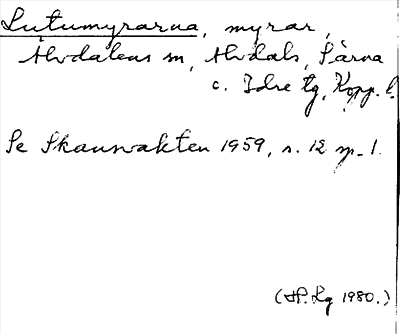 Lutumyrarna, myrar,
Älvdalens sn, Älvdals, Särna
o. Idre tg, Kopp. l.
Se Skansvakten 1959, s. 12 sp. 1.
(H. Lg 1980.)